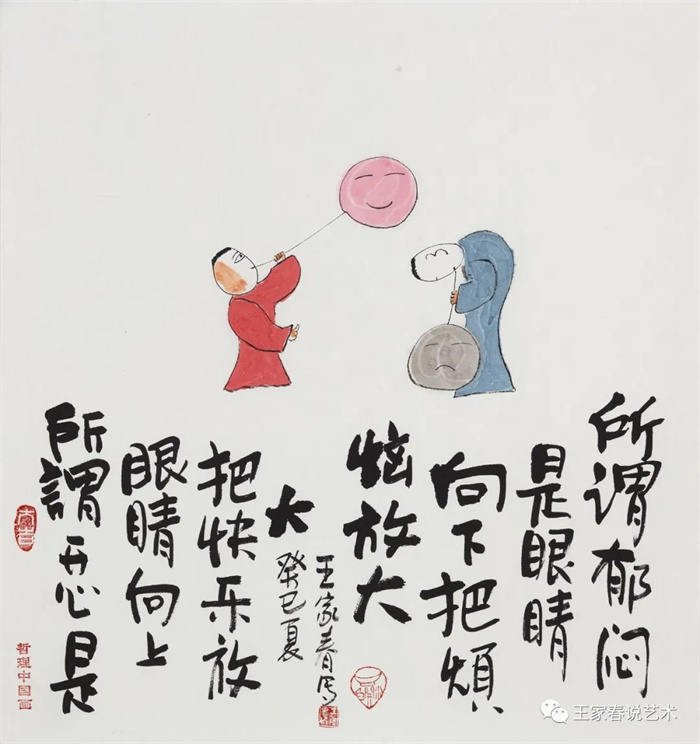 所谓郁闷
是眼睛
向下把煩
恼放大
所謂开心是
眼睛向上
把快乐放
大
癸巳夏
王家春写
哲理中国画
王家春说艺术